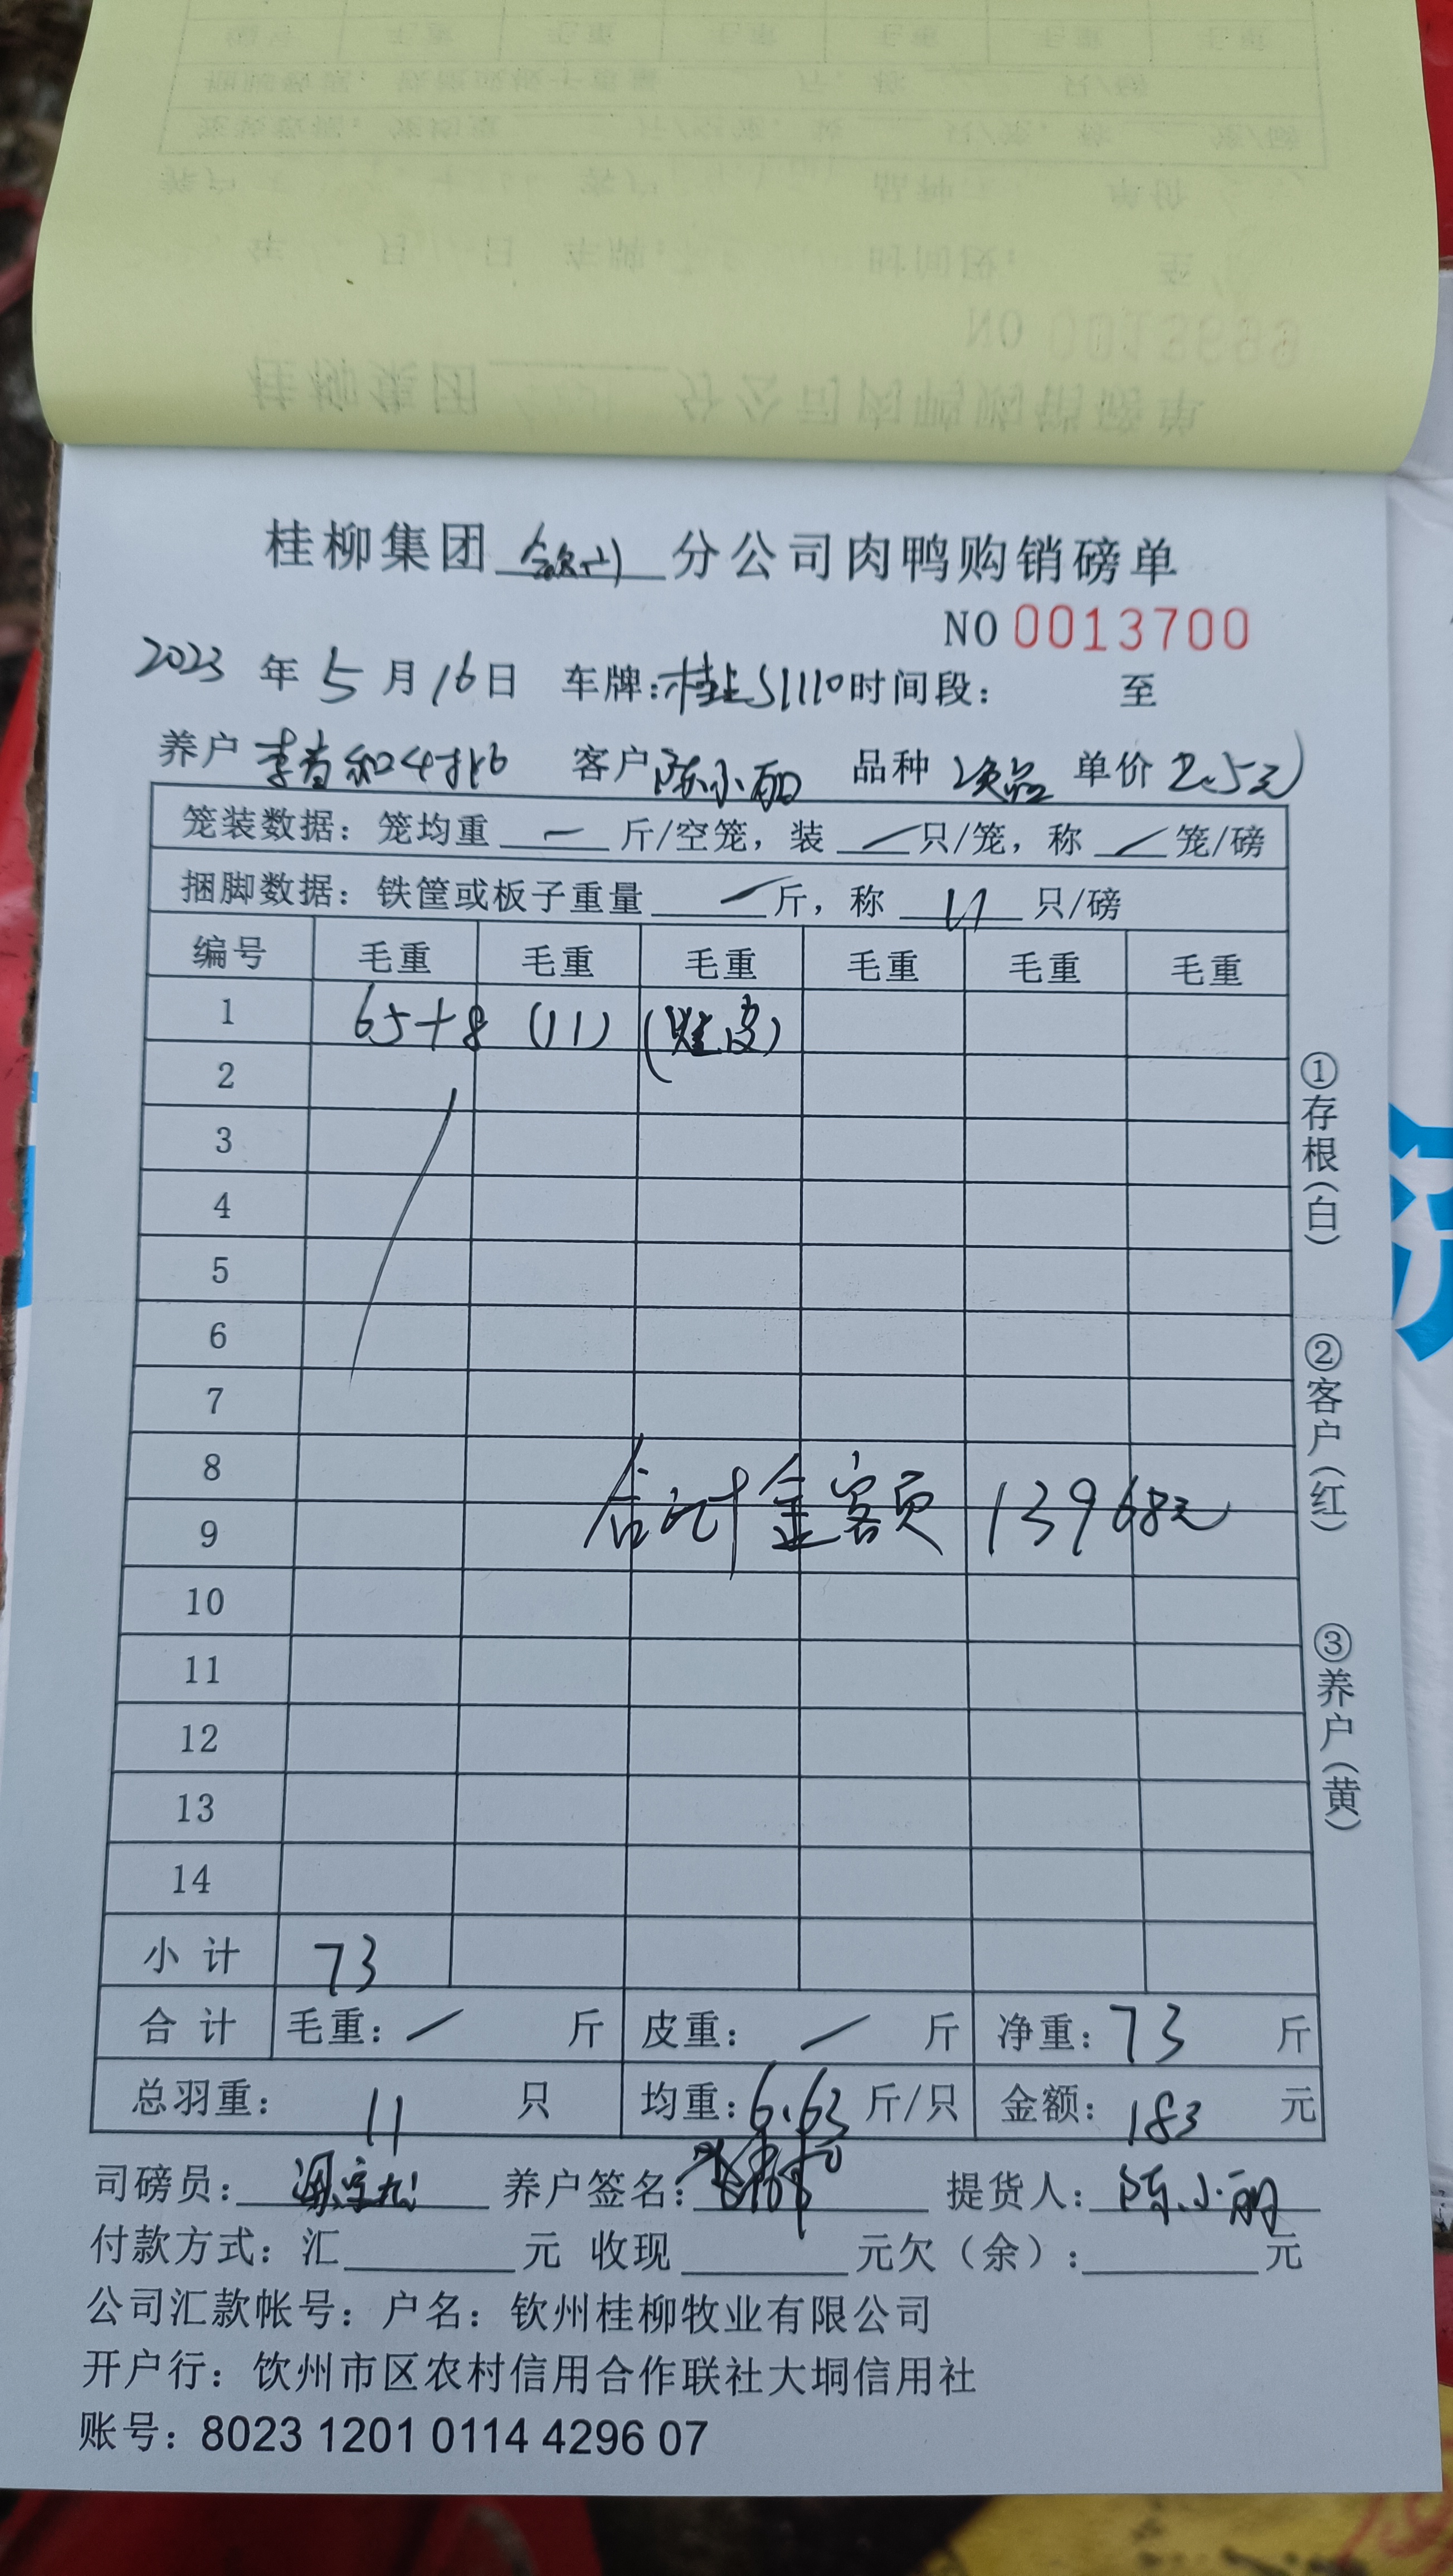 桂柳集团 钦州 分公司肉鸭购销磅单
NO 0013700
2023 年 5 月 16 日 车牌: 桂 S1110 时间段: 至
养户 李 和 4批 客户 陈小丽 品种 次品 单价 2.5元
笼装数据: 笼均重 — 斤/空笼, 装 / 只/笼, 称 / 笼/磅
捆脚数据: 铁筐或板子重量 / 斤, 称 11 只/磅
编号 毛重 毛重 毛重 毛重 毛重 毛重
1 65+8 (11) ( 皮)
2
3
4
5
6
7
8
合计金额 13968元
9
10
11
12
13
14
小计 73
合计 毛重: / 斤 皮重: / 斤 净重: 73 斤
总羽重: 11 只 均重: 6.63 斤/只 金额: 183 元
司磅员: 养户签名: 提货人: 陈小丽
付款方式: 汇 元 收现 元欠(余): 元
公司汇款帐号: 户名: 钦州桂柳牧业有限公司
开户行: 钦州市区农村信用合作联社大垌信用社
账号: 8023 1201 0114 4296 07
①存根(白)
②客户(红)
③养户(黄)